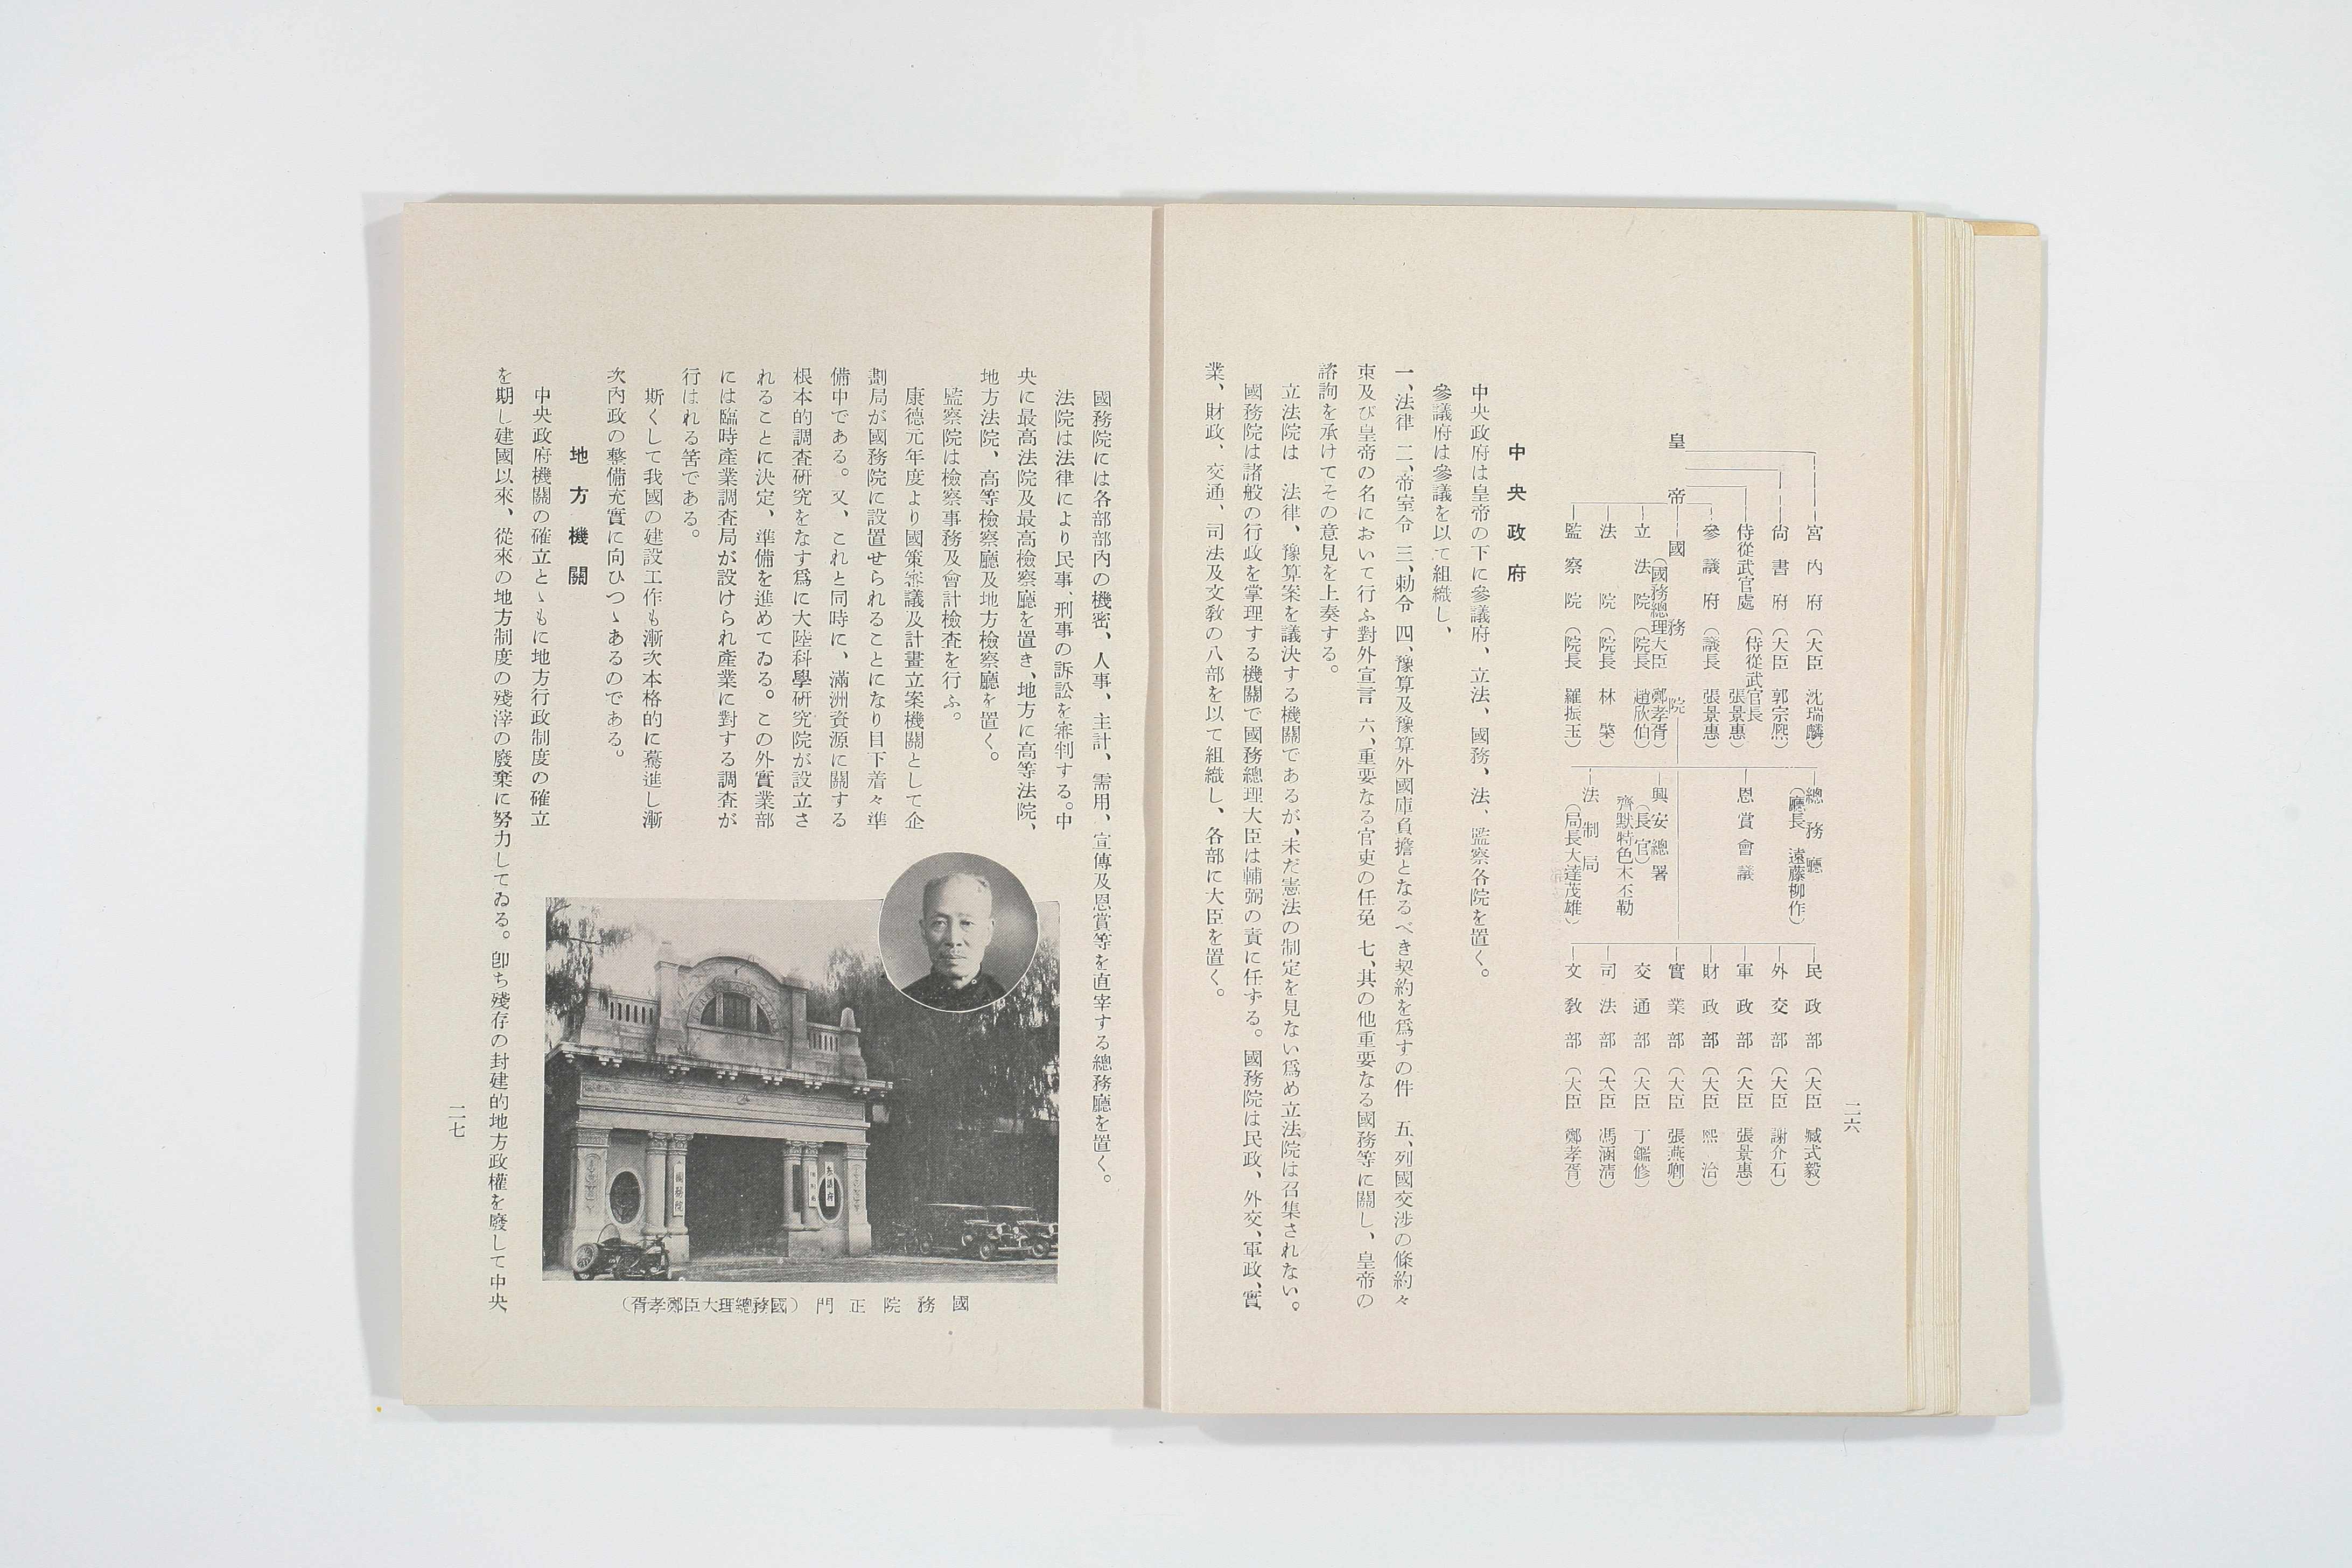 二六
皇帝
宮內府（大臣 沈瑞麟）
尙書府（大臣 郭宗熙）
侍從武官處（侍從武官長 張景惠）
參議府（議長 張景惠）
國務院（國務總理大臣 鄭孝胥）
立法院（院長 趙欣伯）
法院（院長 林棨）
監察院（院長 羅振玉）
總務廳（廳長 遠藤柳作）
恩賞會議
興安總署（長官）齊默特色木丕勒
法制局（局長大達茂雄）
民政部（大臣 臧式毅）
外交部（大臣 謝介石）
軍政部（大臣 張景惠）
財政部（大臣 熙治）
實業部（大臣 張燕卿）
交通部（大臣 丁鑑修）
司法部（大臣 馮涵淸）
文敎部（大臣 鄭孝胥）
中央政府
中央政府は皇帝の下に參議府、立法、國務、法、監察各院を置く。
參議府は參議を以て組織し、
一、法律 二、帝室令 三、勅令 四、豫算及豫算外國庫負擔となるべき契約を爲すの件 五、列國交涉の條約々
束及び皇帝の名において行ふ對外宣言 六、重要なる官吏の任免 七、其の他重要なる國務等に關し、皇帝の
諮詢を承けてその意見を上奏する。
立法院は 法律、豫算案を議決する機關であるが、未だ憲法の制定を見ない爲め立法院は召集されない。
國務院は諸般の行政を掌理する機關で國務總理大臣は輔弼の責に任ずる。國務院は民政、外交、軍政、實
業、財政、交通、司法及文敎の八部を以て組織し、各部に大臣を置く。
國務院には各部部內の機密、人事、主計、需用、宣傳及恩賞等を直宰する總務廳を置く。
法院は法律により民事、刑事の訴訟を審判する。中
央に最高法院及最高檢察廳を置き、地方に高等法院、
地方法院、高等檢察廳及地方檢察廳を置く。
監察院は檢察事務及會計檢查を行ふ。
康德元年度より國策審議及計畫立案機關として企
劃局が國務院に設置せられることになり目下着々準
備中である。又、これと同時に、滿洲資源に關する
根本的調查硏究をなす爲に大陸科學硏究院が設立さ
れることに決定、準備を進めてゐる。この外實業部
には臨時產業調查局が設けられ產業に對する調查が
行はれる筈である。
斯くして我國の建設工作も漸次本格的に驀進し漸
次內政の整備充實に向ひつゝあるのである。
地方機關
中央政府機關の確立とゝもに地方行政制度の確立
を期し建國以來、從來の地方制度の殘滓の廢棄に努力してゐる。卽ち殘存の封建的地方政權を廢して中央、
國務院
參議府
國務院正門（國務總理大臣鄭孝胥）
二七